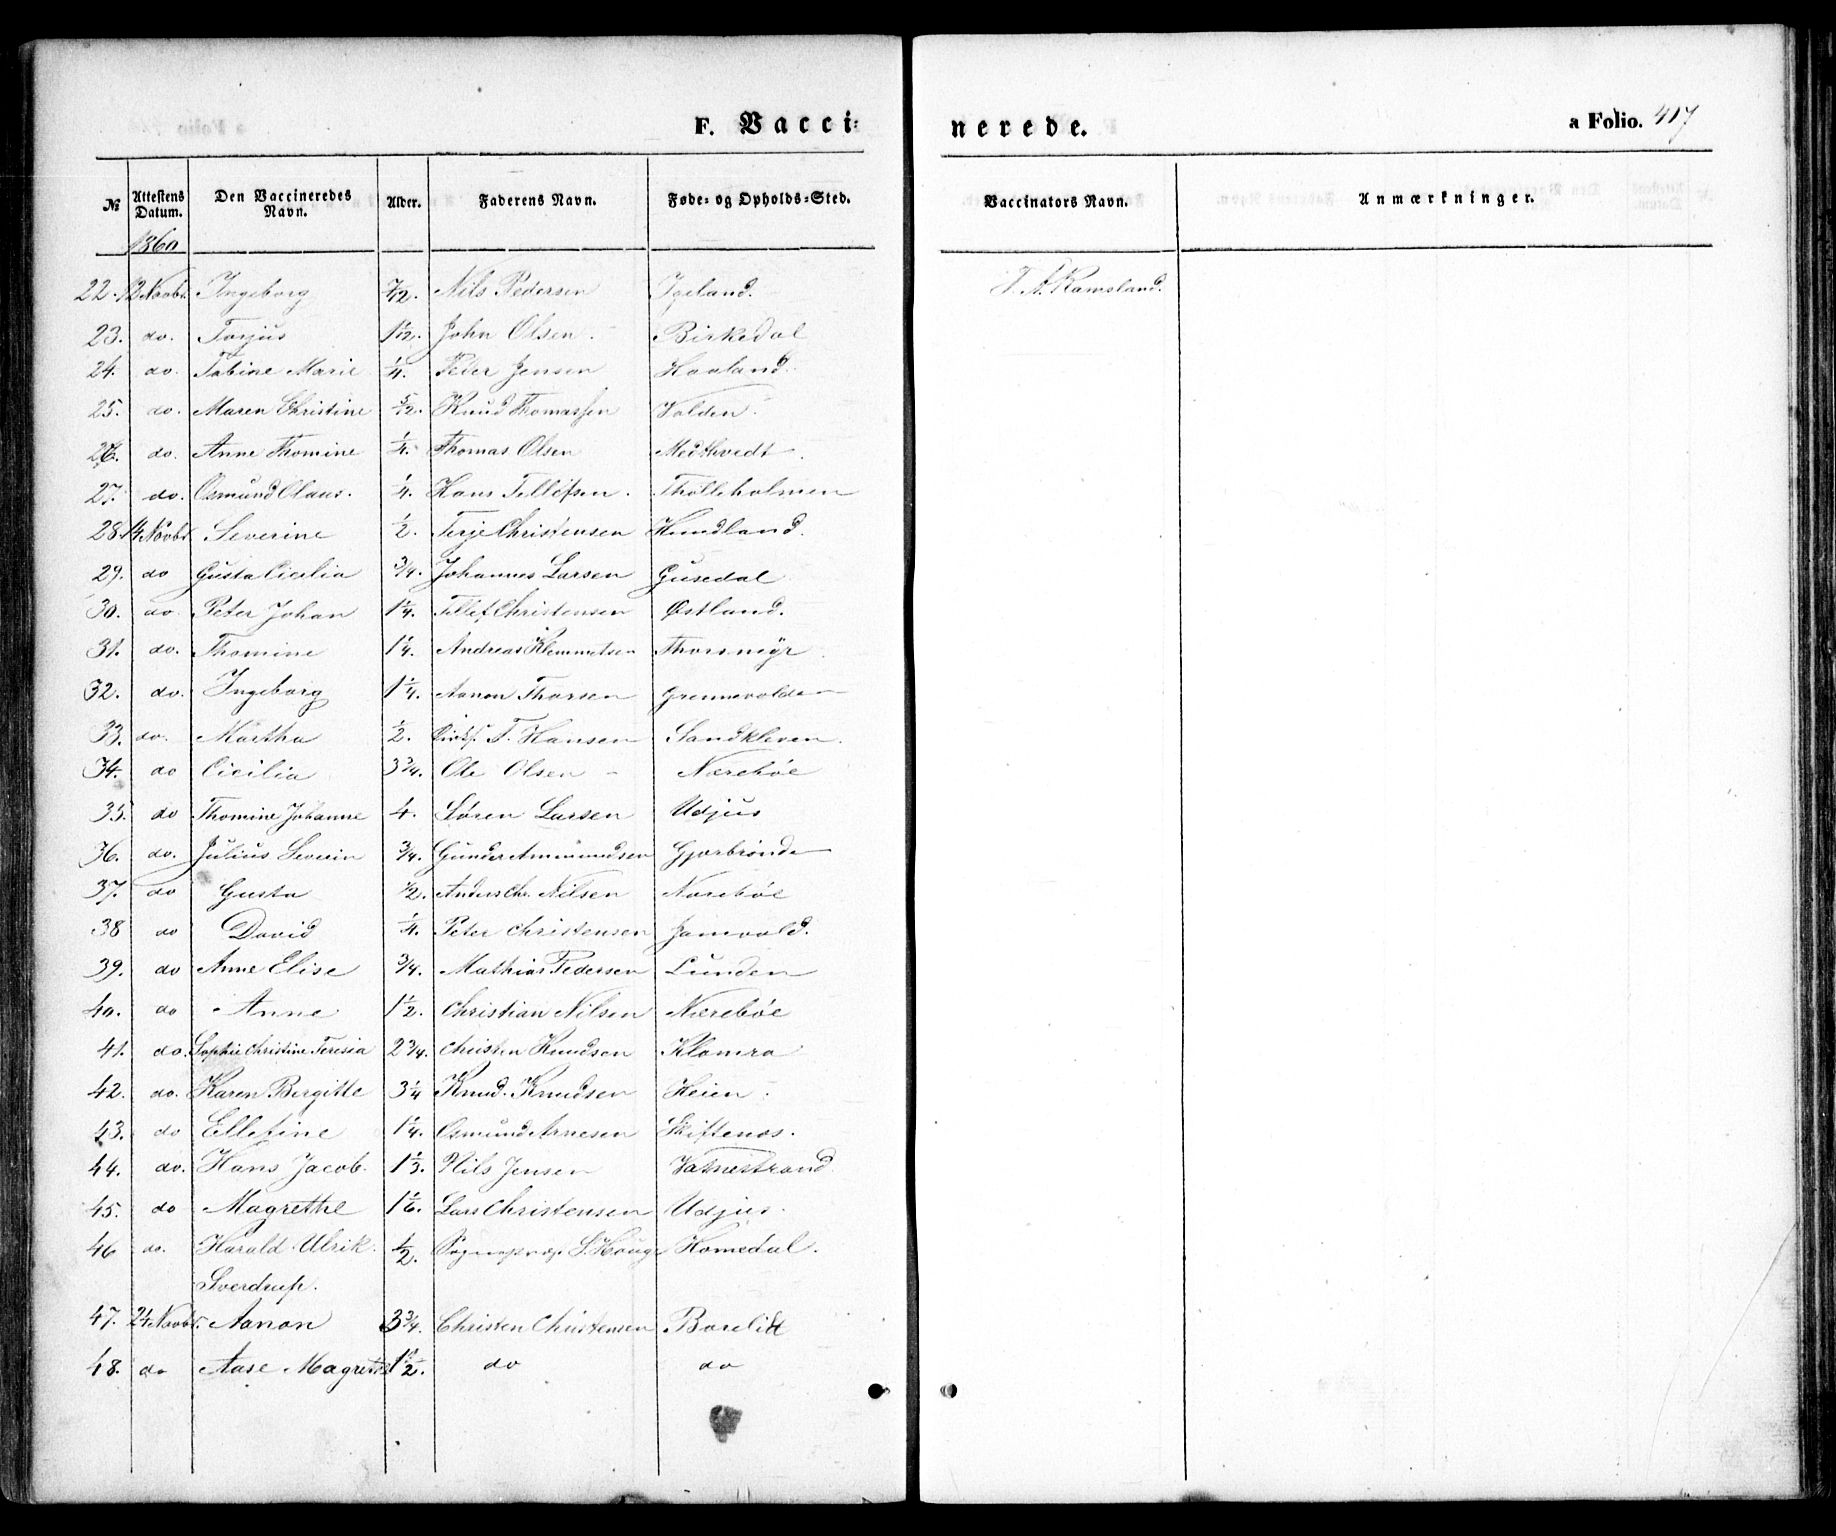 F. Vacci=
nerede.
a Folio. 417
№ Attestens Datum. Den Vaccineredes Navn. Alder. Faderens Navn. Føde- og Opholds-Sted. Vaccinators Navn. Anmærkninger.
1860
22. 12 Novbr. Ingeborg 7/12. Nils Pedersen Igeland. Ramsland.
23. do. Torjus 1 1/12. John Olsen Birkedal
24. do. Tobine Marie 1/4. Peder Jensen Haaland
25. do. Maren Christine 5/12. Knud Thomassen Volden
26. do. Anne Thomine 1/4. Thomas Olsen
27. do. Osmund Olaus. 1/4. Hans Tellefsen. Thølleholmen
28. 14 Novbr. Severine 1/2. Terje Christensen Hundland.
29. do Gusta Cicilia 3/4. Johannes Larsen Gusedal
30. do. Peter Johan 1 1/4. Tellef Christensen Østland.
31. do. Thomine 1 1/4. Andreas Klemmetsen Thorsmyr
32. do. Ingeborg 1 1/4. Aanon Thorsen Grennevolden
33. do. Martha 1/2. T. Hansen Sandkleven.
34. do Cicilia 3 3/4. Ole Olsen Nærebøe
35. do Thomine Johanne 4. Søren Larsen Udjus
36. do. Julius Severin 3/4. Gunder Ammundsen Gjærbrønde
37. do Gusta 1/2. Anders Chr. Nilsen Nærebøe
38 do David 1/4. Peter Christensen Jamvold.
39. do Anne Elise 3/4. Mathias Pedersen Lunden
40. do Anne 1 1/2. Christian Nilsen Nærebøe
41. do. Sophie Christine Teresia 2 3/4. Christen Knudsen Klomra
42. do. Karen Birgitte 3 1/4 Knud. Knudsen Heien.
43. do Ellefine 1 1/4. Osmund Arnesen Skiftenes.
44. do. Hans Jacob. 1 1/3. Nils Jensen Vatnestrand
45. do Magrethe 1 1/6. Lars Christensen Udjus.
46 do. Harald Ulrik 1/2. S. Houge Homedal.
Sverdrup.
47. 24 Novbr. Aanon 3 3/4. Christen Christensen Borelid
48. do Aase Magrethe 1 1/2. do do